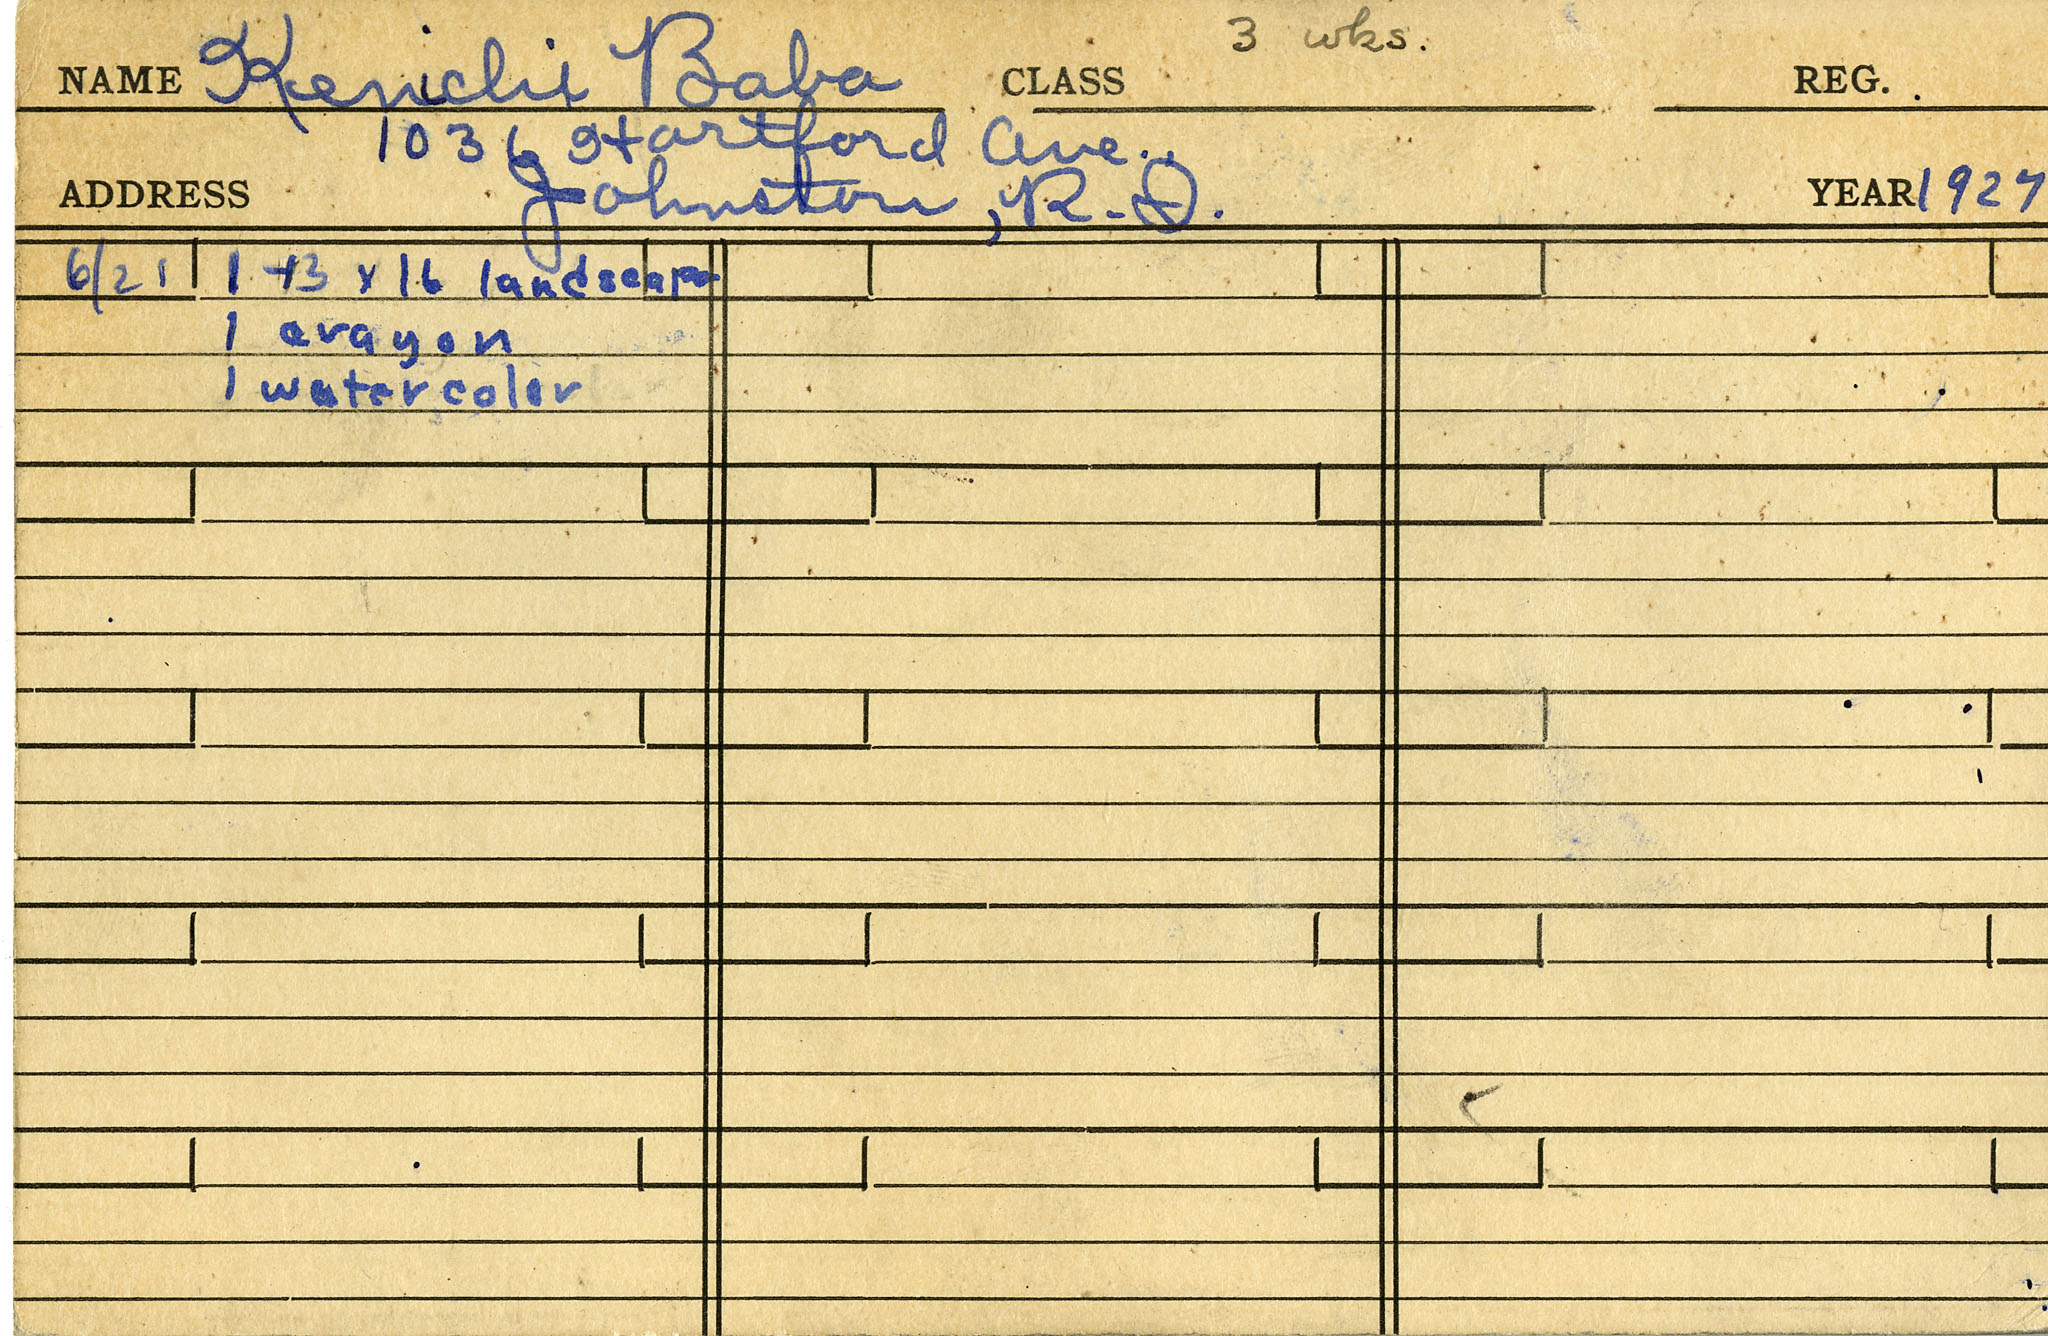 3 wks.
NAME Kenichi Baba CLASS REG.
1036 Hartford Ave.,
ADDRESS Johnston, R. I. YEAR 1927
6/21 1 13 x 16 landscape
1 crayon
1 watercolor